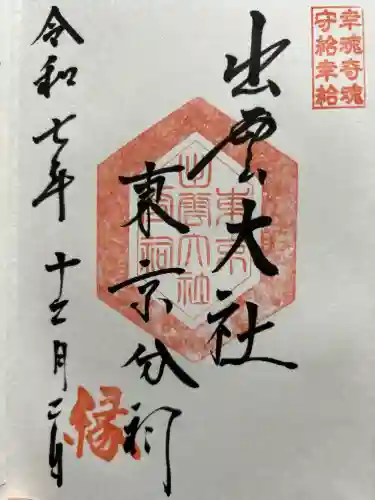 幸魂奇魂
守給幸給
出雲大社
東京分祠
出雲大社
東京
分祠
縁
令和七年十二月二日